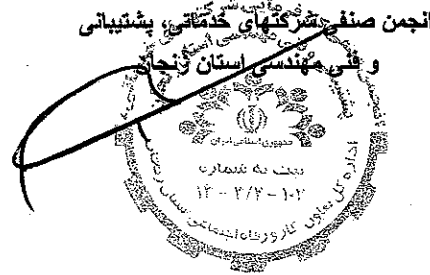 انجمن صنفی شرکتهای خدماتی، پشتیبانی
و فنی مهندسی استان زنجان
جمهوری اسلامی ایران
ثبت به شماره
۱۳ - ۳/۲ - ۱۰۲
اداره کل تعاون کار و رفاه اجتماعی استان زنجان